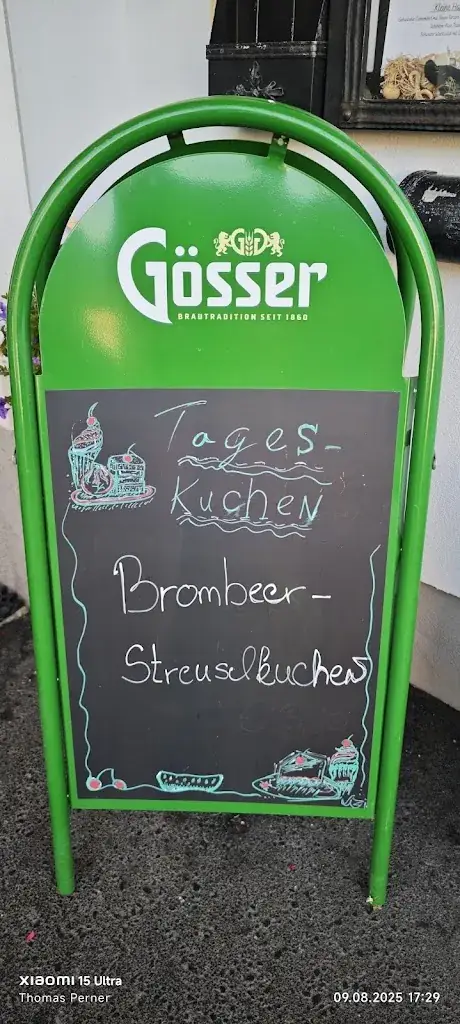 Kleine
Gösser
BRAUTRADITION SEIT 1860
Tages-
Kuchen
Brombeer-
Streuselkuchen
XIAOMI 15 Ultra
Thomas Perner
09.08.2025 17:29